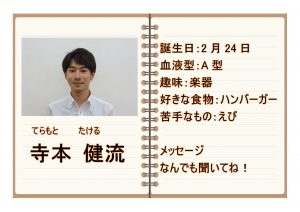 てらもと たける
寺本 健流
誕生日:2月24日
血液型:A型
趣味:楽器
好きな食物:ハンバーガー
苦手なもの:えび
メッセージ
なんでも聞いてね!